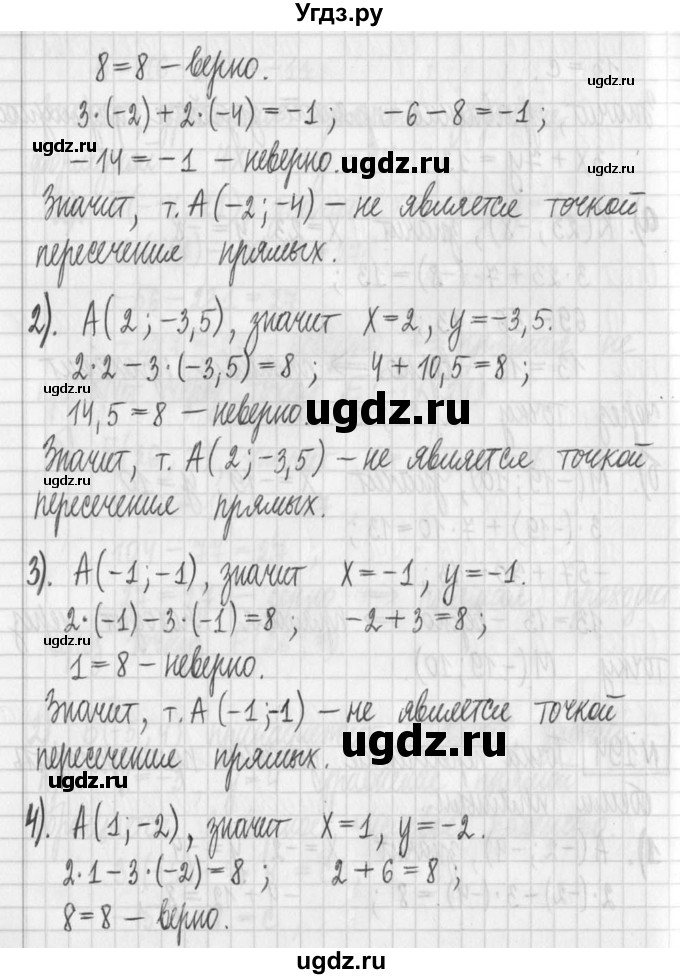 Угдз.ру
8 = 8 – верно.
3·(-2) + 2·(-4) = -1 ; -6 - 8 = -1 ;
-14 = -1 – неверно.
Значит, т. А(-2 ; -4) – не является точкой
пересечения прямых.
2). А( 2 ; -3,5) , значит х = 2 , у = -3,5.
2·2 - 3·(-3,5) = 8 ; 4 + 10,5 = 8 ;
14,5 = 8 – неверно.
Значит, т. А( 2 ; -3,5) – не является точкой
пересечения прямых.
3). А(-1 ; -1) , значит х = -1 , у = -1.
2·(-1) - 3·(-1) = 8 ; -2 + 3 = 8 ;
1 = 8 – неверно.
Значит, т. А (-1 ; -1) – не является точкой
пересечения прямых.
4). А( 1 ; -2) , значит х = 1 , у = -2.
2·1 - 3·(-2) = 8 ; 2 + 6 = 8 ;
8 = 8 – верно.
ugdz.ru
ugdz.ru
ugdz.ru
ugdz.ru
ugdz.ru
ugdz.ru
ugdz.ru
ugdz.ru
ugdz.ru
ugdz.ru
ugdz.ru